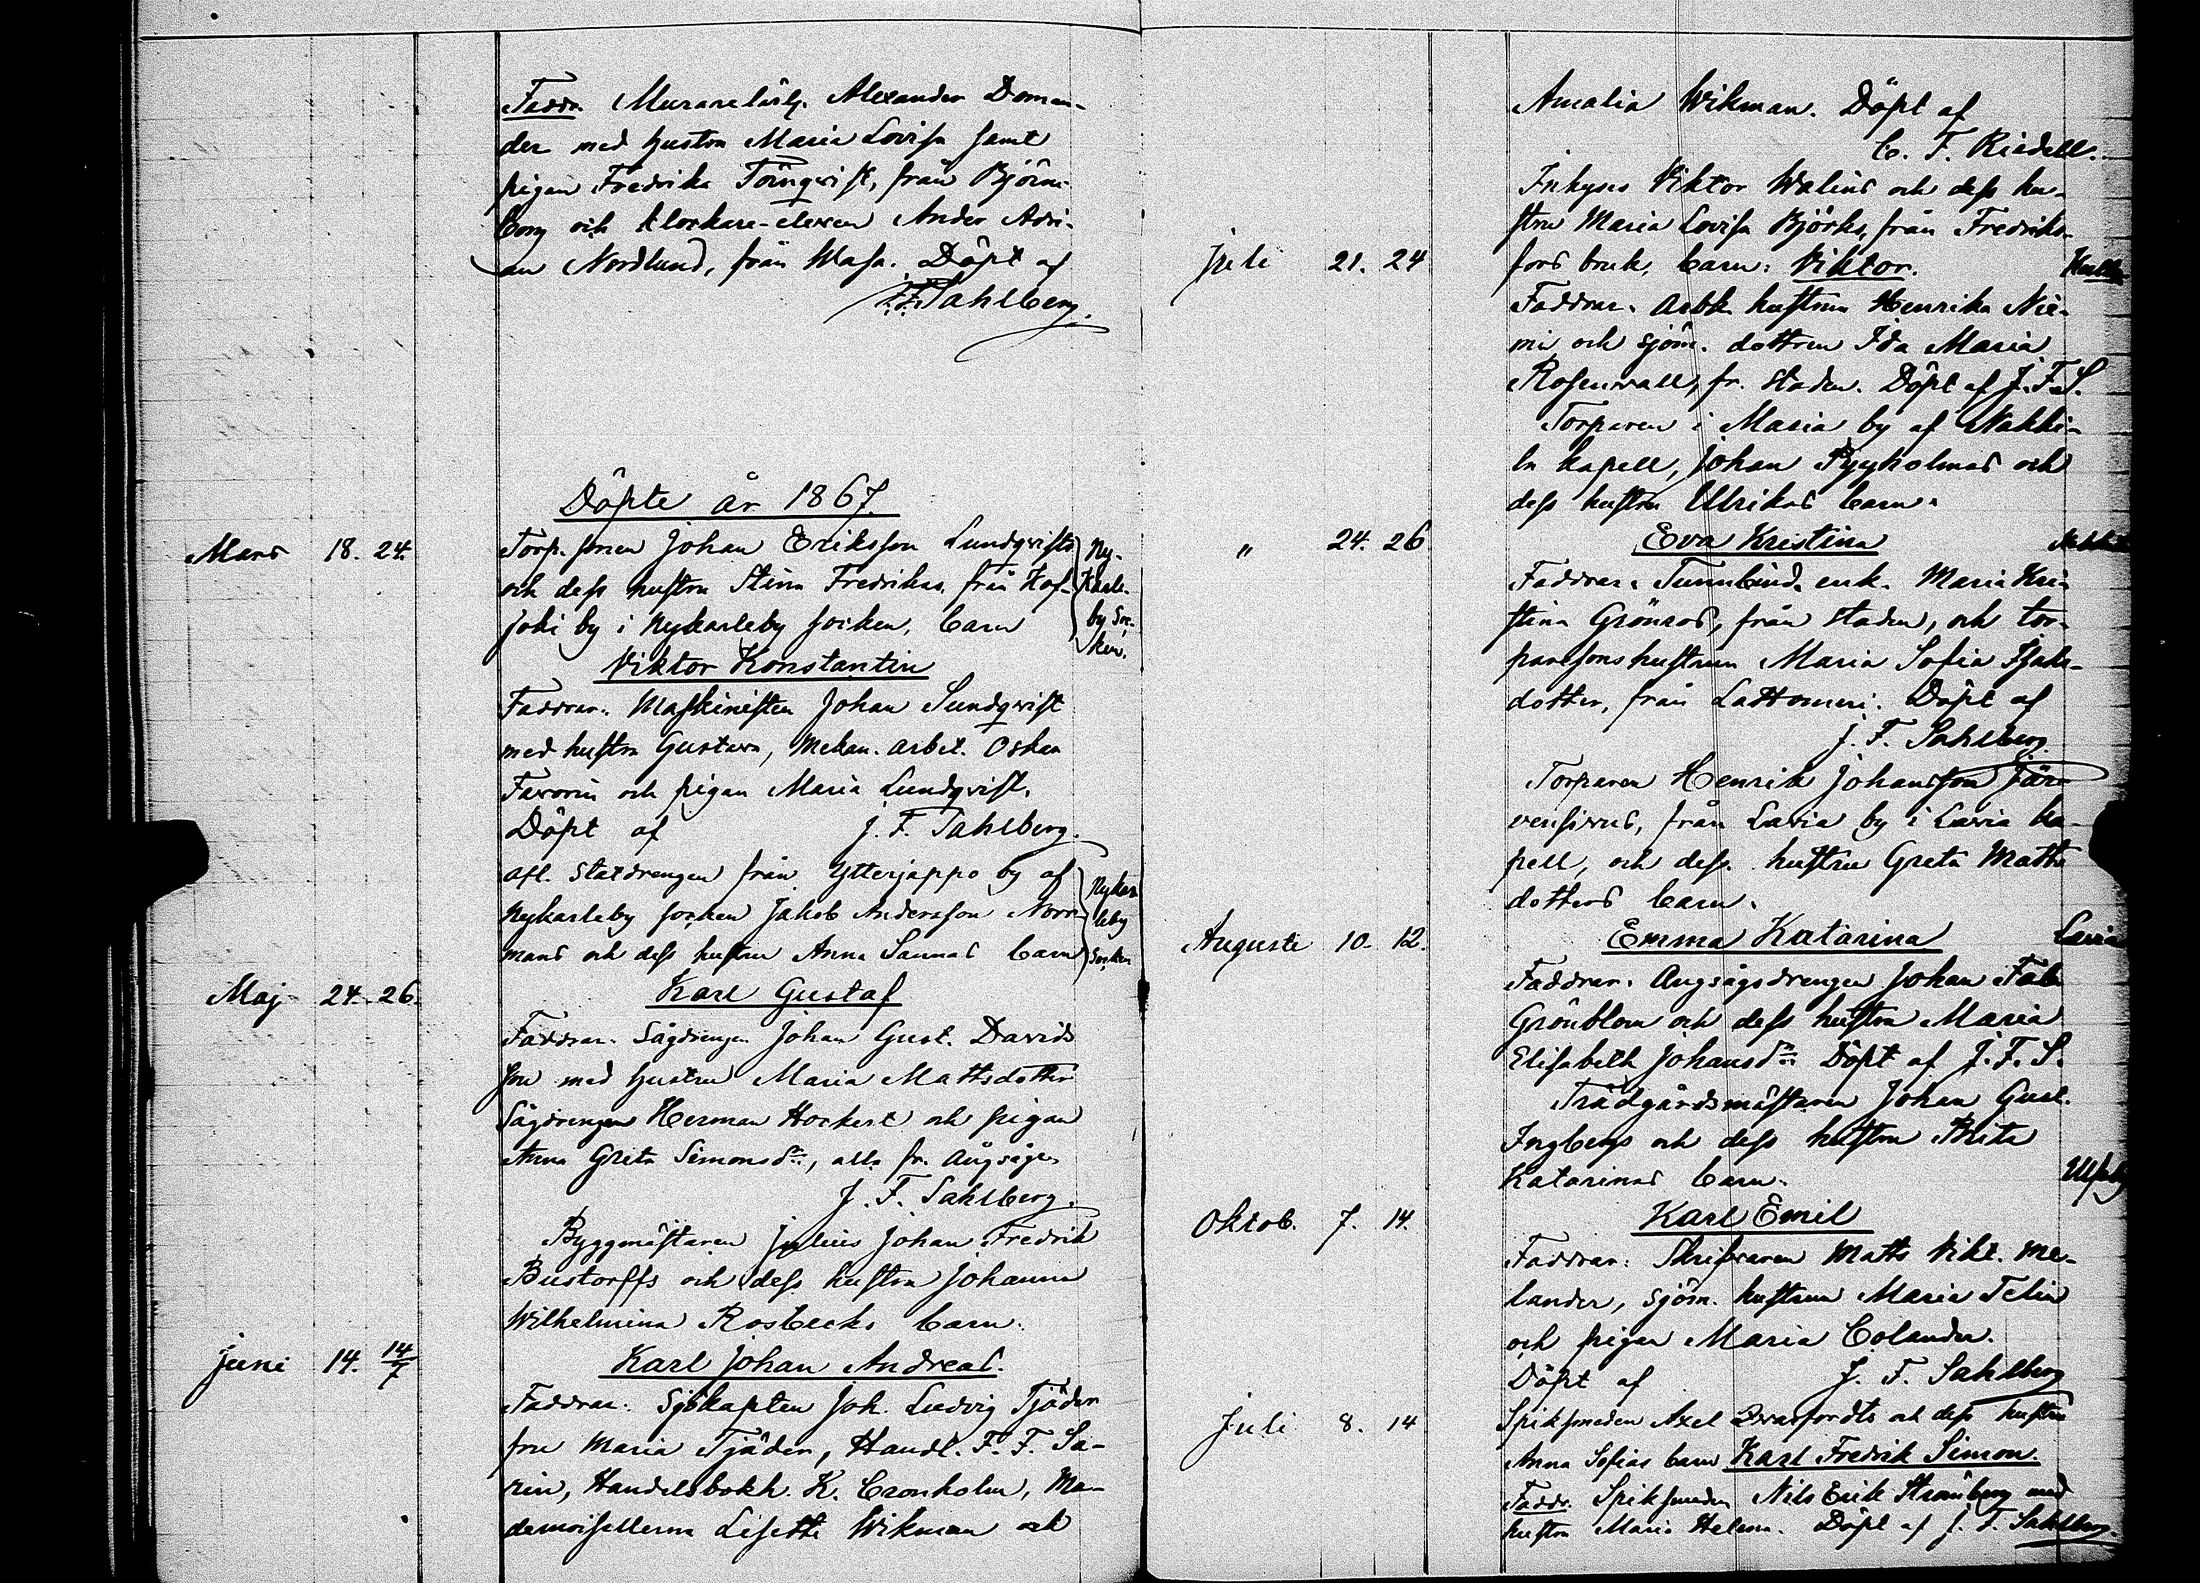 Faddr. Murarelärl. Alexander Doman-
der med hustrun Maria Lovisa samt
pigan Fredrika Törnqvist, från Björne-
borg och klockare-eleven Ander Adri-
an Nordlund, från Wasa. Döpt af
J. F. Sahlberg.
Döpte år 1867.
Torp. sonen Johan Eriksson Lundqvists
Mars 18. 24.
och dess hustru Stina Fredrikas, från Kof-
joki by i Nykarleby socken, barn
Ny-
karle-
by soc-
ken.
Viktor Konstantin
Faddrar. Maskinisten Johan Sundqvist
med hustru Gustava, mekan. arbet. Oskar
Favorin och pigan Maria Lundqvist.
Döpt af J. F. Sahlberg.
Afl. statdrengen från Ytterjeppo by af
Nykarleby socken Jakob Andersson Norr-
mans och dess hustru Anna Sannas barn
Nykar
leby
socken
Maj 24. 26. Karl Gustaf
Faddrar. Sågdrengen Johan Gust. Davids
son med hustru Maria Mattsdotter
Sågdrengen Herman Hockert och pigan
Anna Greta Simonsdr., alla fr. Ångsågen
J. F. Sahlberg.
Byggmästaren Julius Johan Fredrik
Bustorffs och dess hustru Johanna
Wilhelmina Rosbecks barn.
Juni 14. 14/7 Karl Johan Andreas.
Faddrar. Sjökapten Joh. Ludvig Tjäder
fru Maria Tjäder, Handl. F. F. Sa-
rin, Handelsbokh. K. Cronholm, Ma-
demoisellerna Lisette Wikman och
Amalia Wikman. Döpt af
C. F. Riedell.
Inhyses Viktor Walins och dess hu-
stru Maria Lovisa Björks, från Fredriks-
Juli 21. 24 fors bruk, barn. Viktor.
Faddrar. Arbk. hustrun Henrika Nie-
mi och sjöm. dottren Ida Maria
Rosenvall, fr. staden. Döpt af J. F. S.
Torparen i Masia by af Nakki-
la kapell, Johan Pyyholmas och
dess hustru Ulrikas barn.
" 24. 26 Eva Kristina
Faddrar. Tunnbind. enk. Maria Kri-
stina Grönros, från staden, och tor-
paresonshustrun Maria Sofia Isaks-
dotter, från Lattomeri. Döpt af
J. F. Sahlberg.
Torparen Henrik Johansson Jär-
vensivus, från Lavia by i Lavia ka-
pell, och dess hustru Greta Matts
dotters barn.
Augusti 10. 12. Emma Katarina Lavia
Faddrar. Ångsågsdrengen Johan Fab.
Grönblom och dess hustru Maria
Elisabeth Johansdr. Döpt af J. F. S.
Trädgårdsmästaren Johan Gust.
Ingbergs och dess hustru Brita
Katarinas barn. Ulfsby
Oktob. 7. 14. Karl Emil
Faddrar: Skrifvaren Matts Vikt. Me-
lander, sjöm. hustrun Maria Felin
och pigan Maria Colander.
Döpt af J. F. Sahlberg
Juli 8. 14 Spiksmeden Axel Svarfordts och dess hustru
Anna Sofias barn Karl Fredrik Simon.
Faddr. Spiksmeden Nils Erik Strömberg med
hustru Maria Helena. Döpt af J. F. Sahlberg.